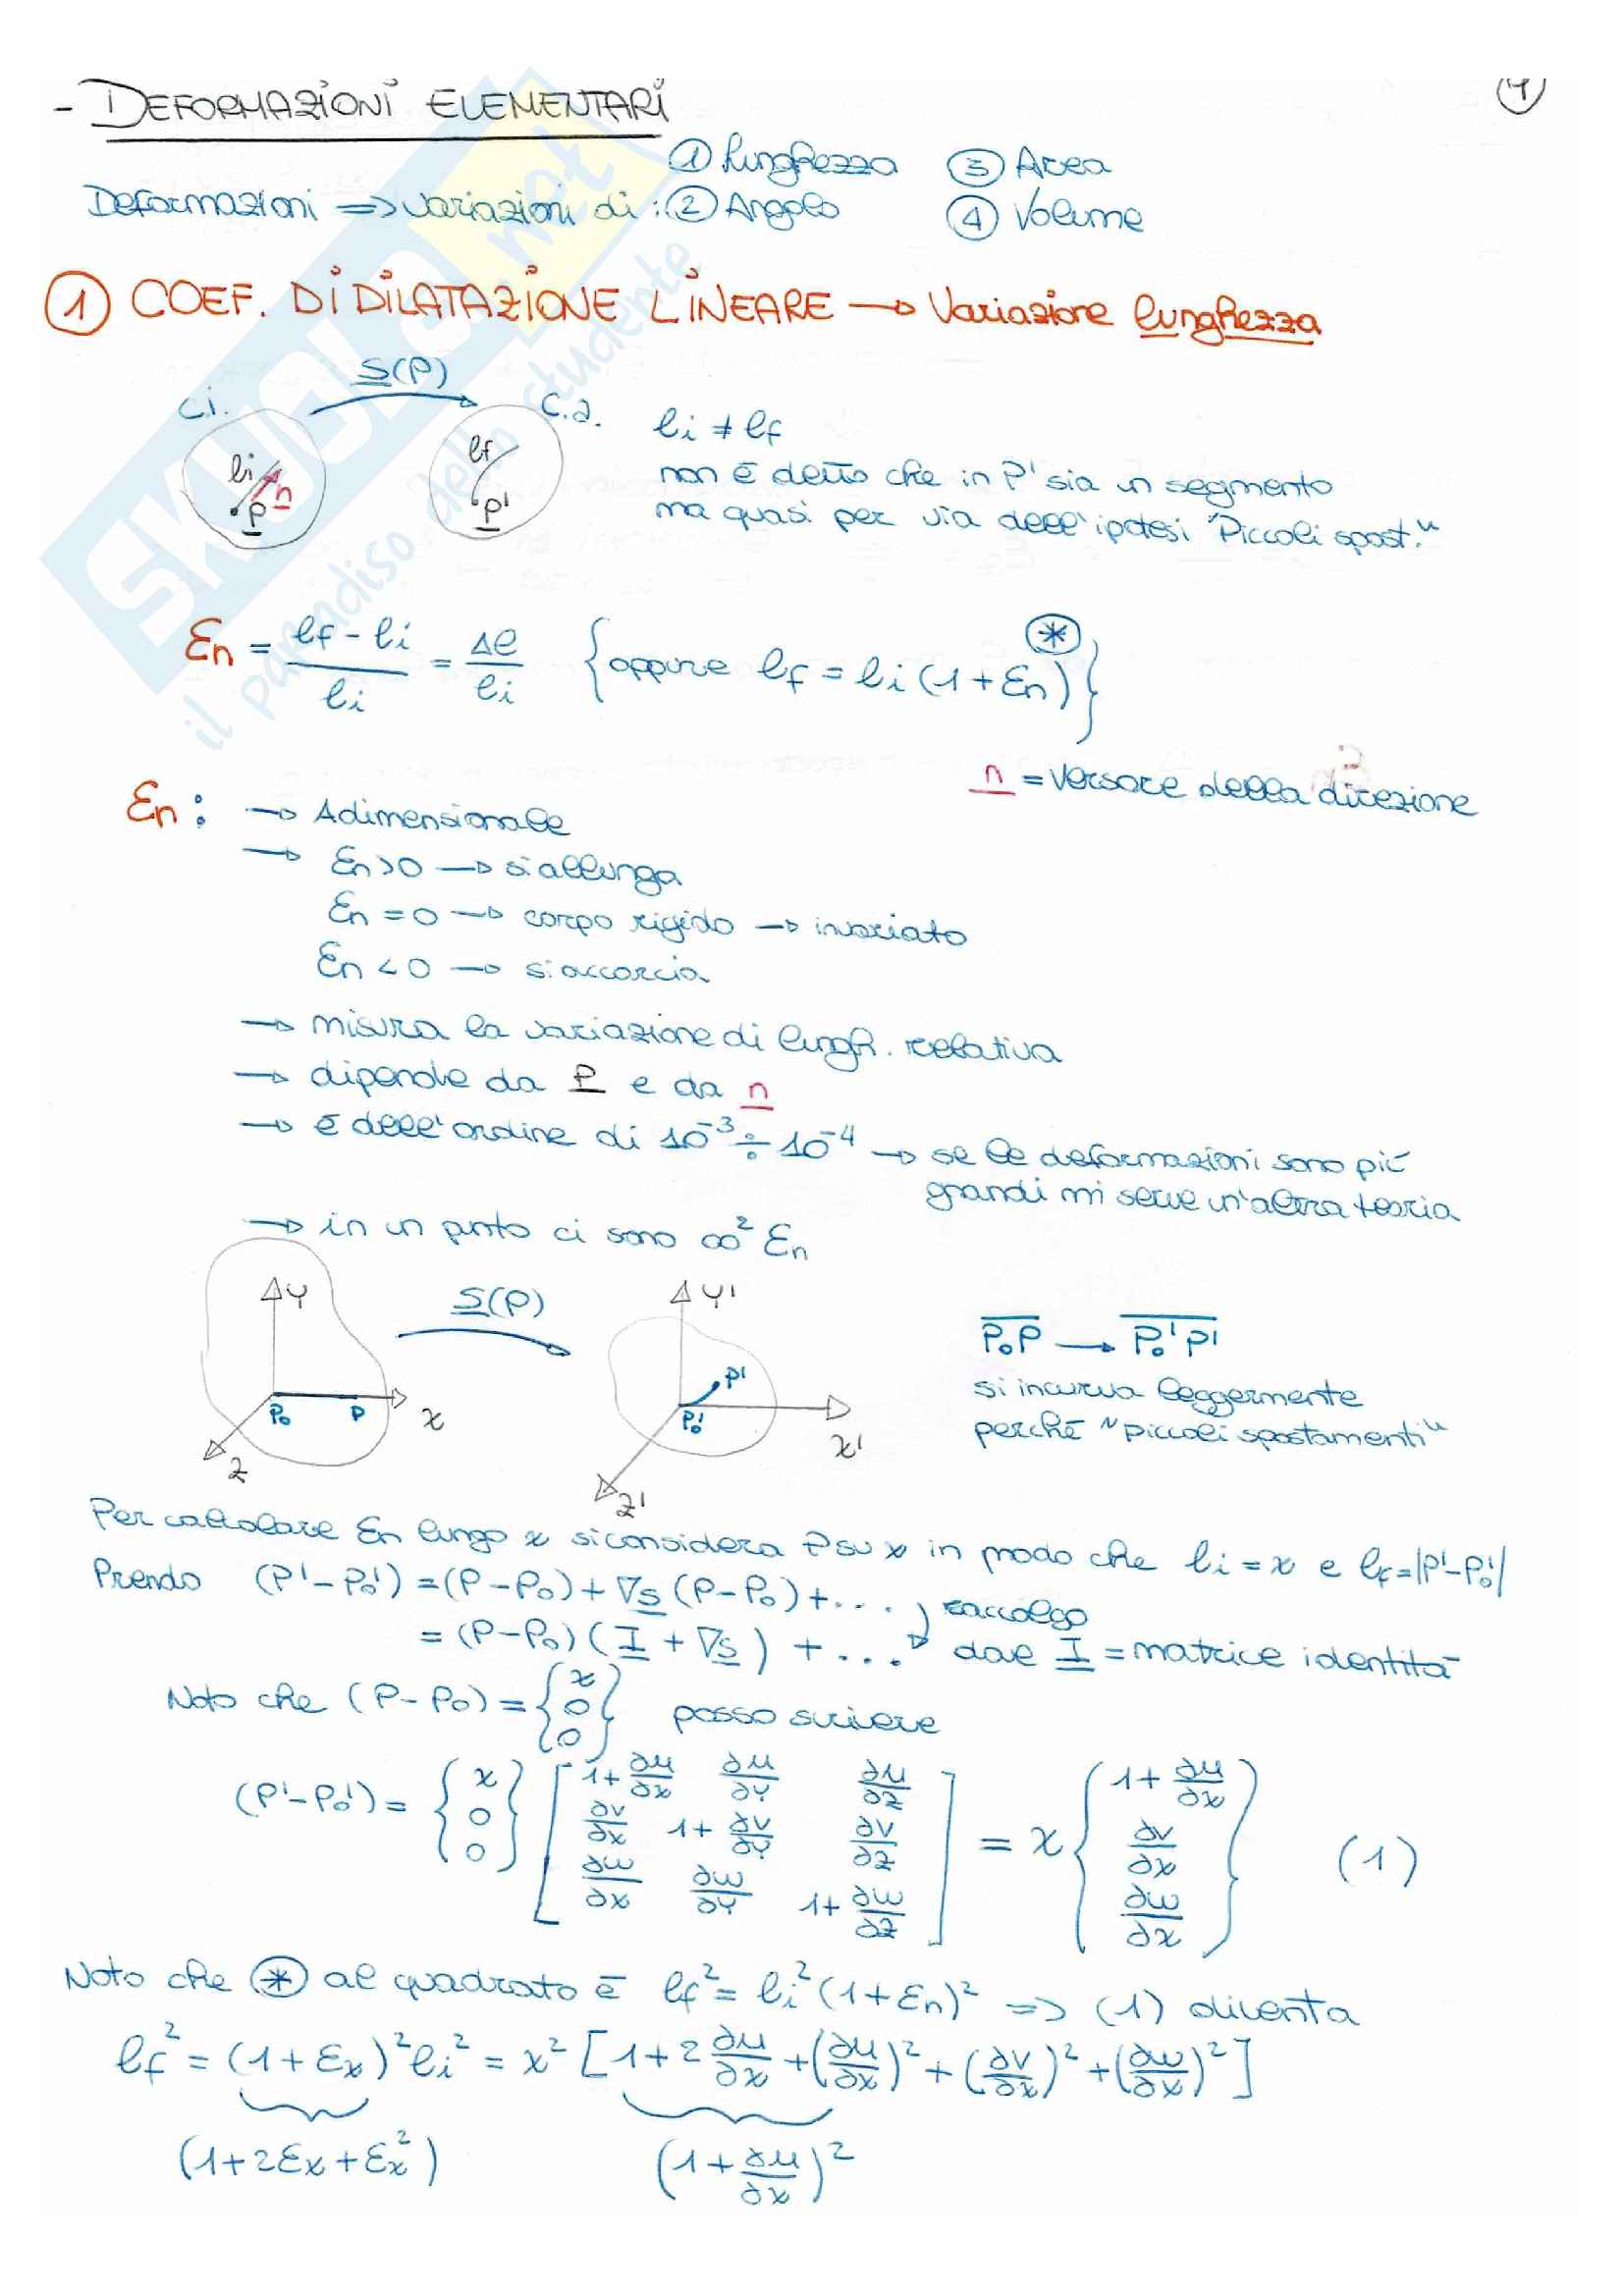 - DEFORMAZIONI ELEMENTARI
4
① lunghezza ③ Area
Deformazioni => variazioni di: ② Angolo ④ Volume
① COEF. DI DILATAZIONE LINEARE → Variazione lunghezza
S(P)
C.i. C.a. li ≠ lf
li n P lf P'
non è detto che in P' sia un segmento
ma quasi per via dell'ipotesi "Piccoli spost."
εn = (lf - li)/li = Δl/li {oppure lf = li (1+εn)} ⊛
n = versore della direzione
εn: → Adimensionale
→ εn>0 → si allunga
εn = 0 → corpo rigido → invariato
εn < 0 → si accorcia
→ misura la variazione di lungh. relativa
→ dipende da P e da n
→ è dell'ordine di 10⁻³ ÷ 10⁻⁴ → se le deformazioni sono più
grandi mi serve un'altra teoria
→ in un punto ci sono ∞² εn
Y S(P) Y'
P₀P → P₀'P'
si incurva leggermente
perché "piccoli spostamenti"
P₀ P x z
P₀' P' x' z'
Per calcolare εn lungo x si considera P su x in modo che li = x e lf=|P'-P₀'|
Prendo (P'-P₀') = (P-P₀) + ∇S (P-P₀) + ... ) raccolgo
= (P-P₀) (I + ∇S) + .... dove I = matrice identità
Noto che (P-P₀) = {x 0 0} posso scrivere
(P'-P₀') = {x 0 0} [1+∂u/∂x ∂u/∂y ∂u/∂z; ∂v/∂x 1+∂v/∂y ∂v/∂z; ∂w/∂x ∂w/∂y 1+∂w/∂z] = x {1+∂u/∂x; ∂v/∂x; ∂w/∂x} (1)
Noto che ⊛ al quadrato è lf² = li² (1+εn)² => (1) diventa
lf² = (1+εx)² li² = x² [1+2 ∂u/∂x + (∂u/∂x)² + (∂v/∂x)² + (∂w/∂x)²]
(1+2εx+εx²) (1+∂u/∂x)²
SKUOLA.net
il paradiso dello studente